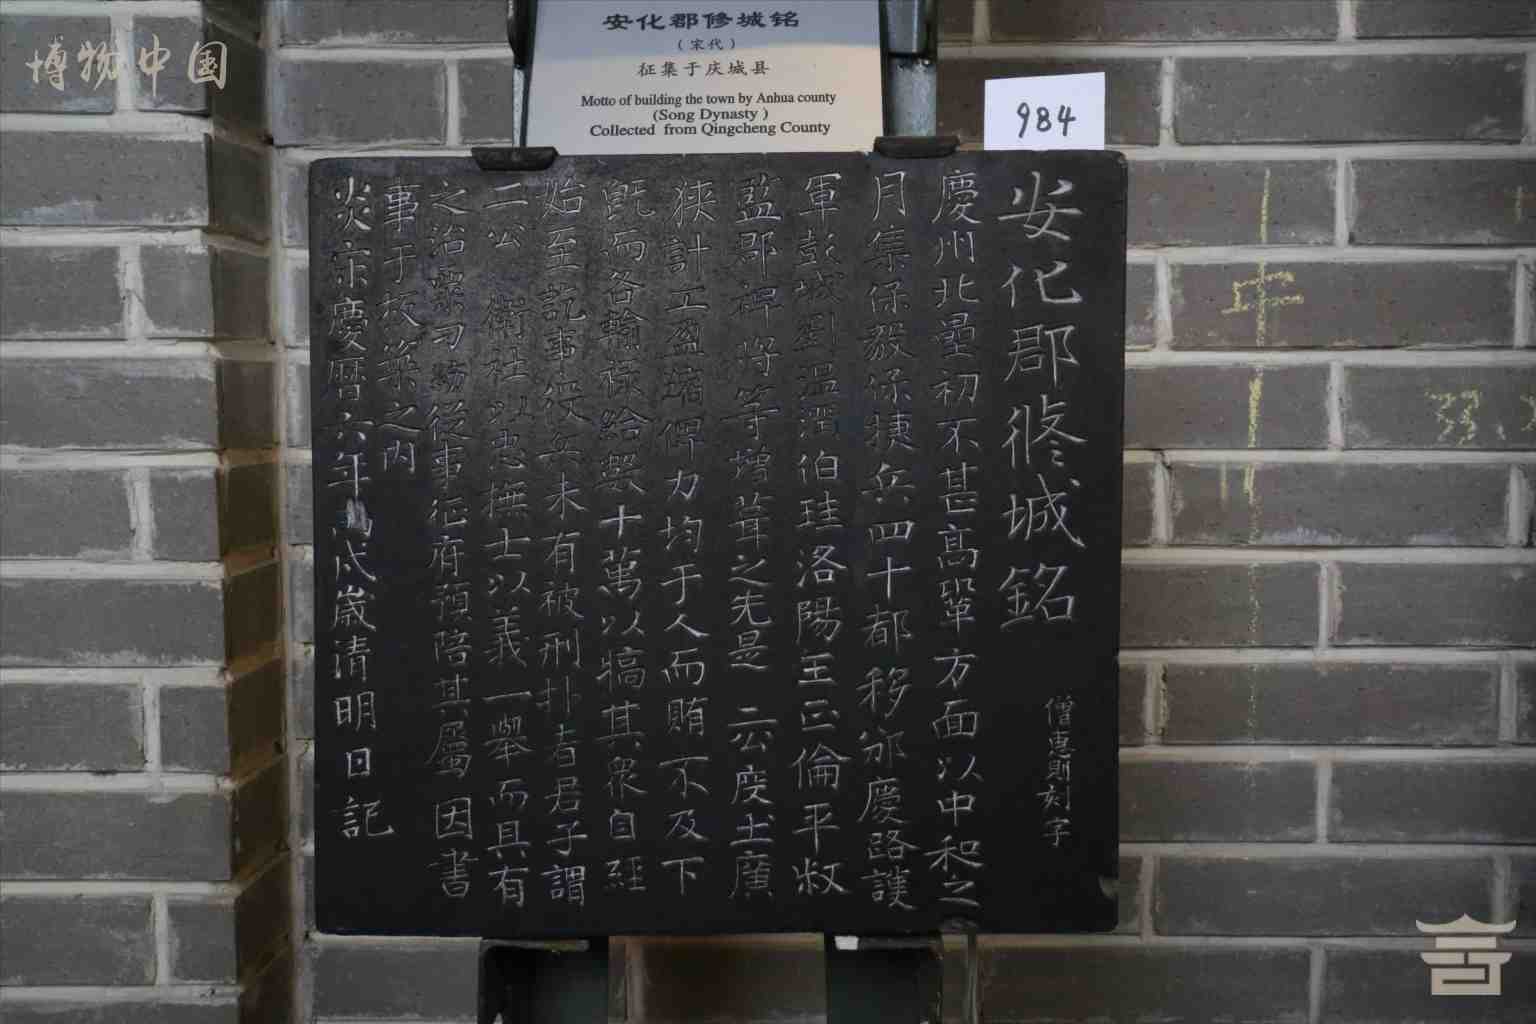 博物中国
安化郡修城铭
（宋代）
征集于庆城县
Motto of building the town by Anhua county
(Song Dynasty )
Collected from Qingcheng County
984
安化郡脩城銘
僧惠則刻字
慶州北壘初不甚高鞏方面以中和之
月集保毅保捷兵四十都移邠慶路護
軍彭城劉温潤伯珪洛陽王正倫平叔
監郡裨將等增葺之先是 二公度土廣
狹計工盈縮俾力均于人而賄不及下
既而各輸祿給製十萬以犒其衆自經
始至訖事役兵未有被刑扑者君子謂
二公 衛社以忠撫士以義一舉而具有
之治衆 從事征府預陪其屬因書
事于板築之内
炎宋慶曆六年 戌歲清明日記